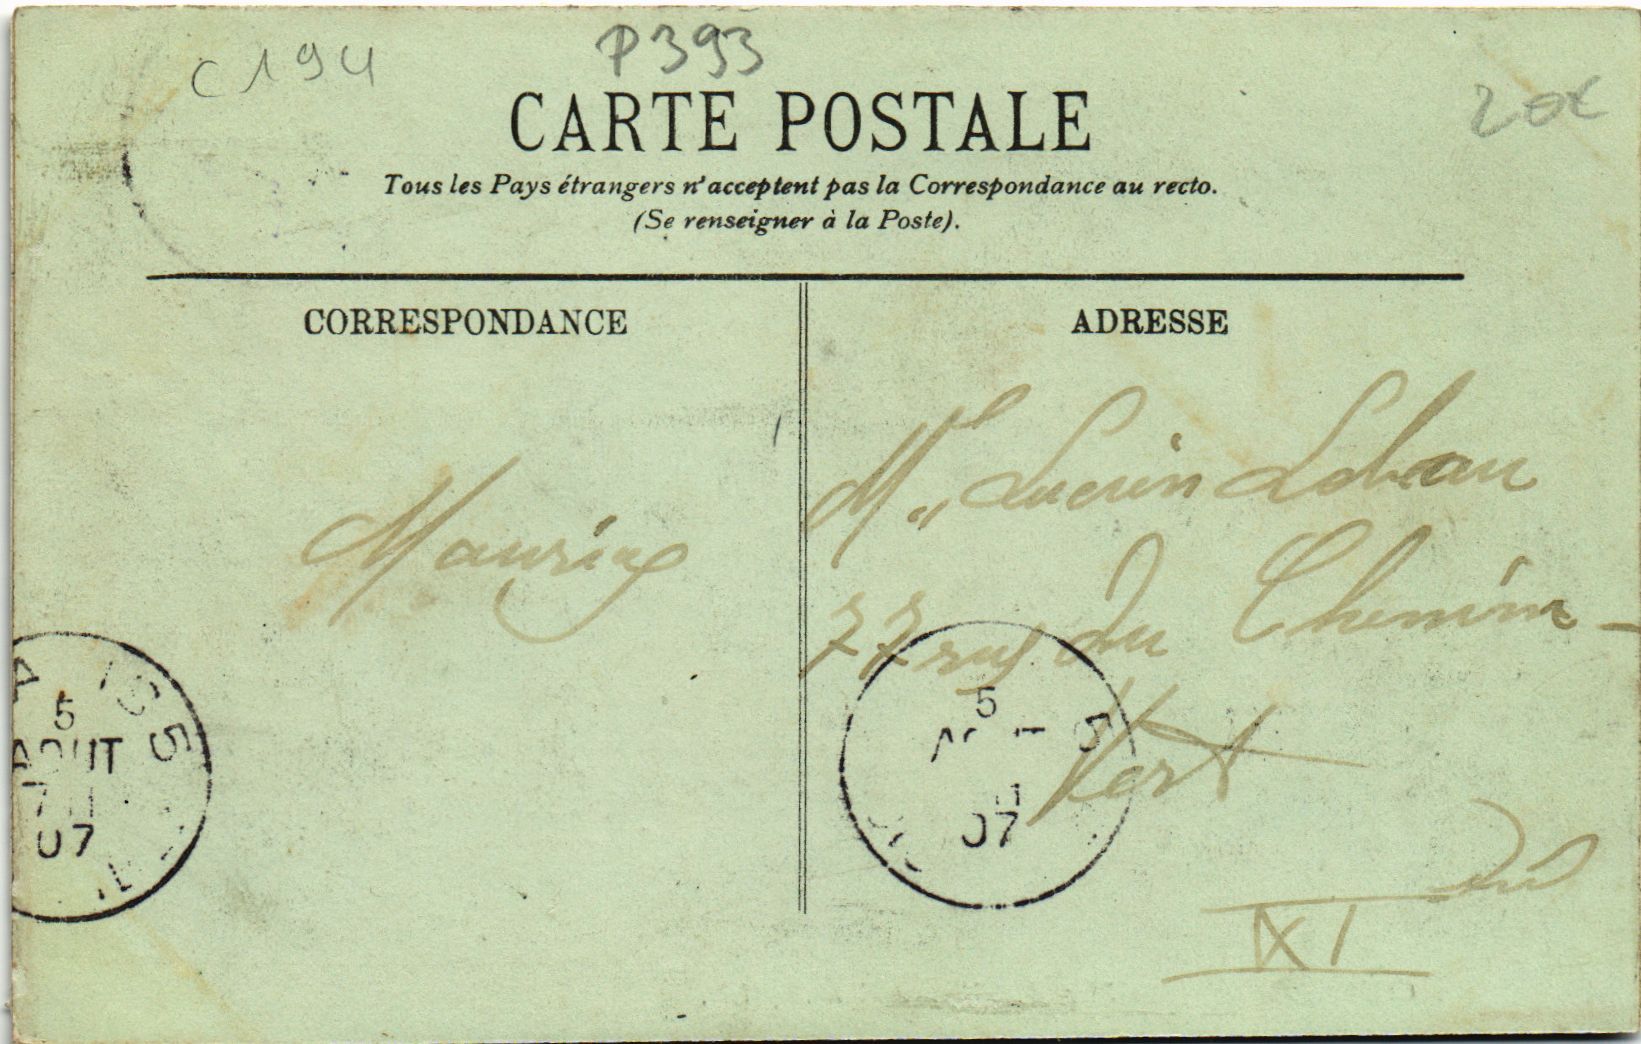 C194
P393
20€
CARTE POSTALE
Tous les Pays étrangers n'acceptent pas la Correspondance au recto.
(Se renseigner à la Poste).
CORRESPONDANCE
ADRESSE
Mr Lucien Lebeau
77 rue du Chemin-
Vert
XI
5
AOUT
07
5
07